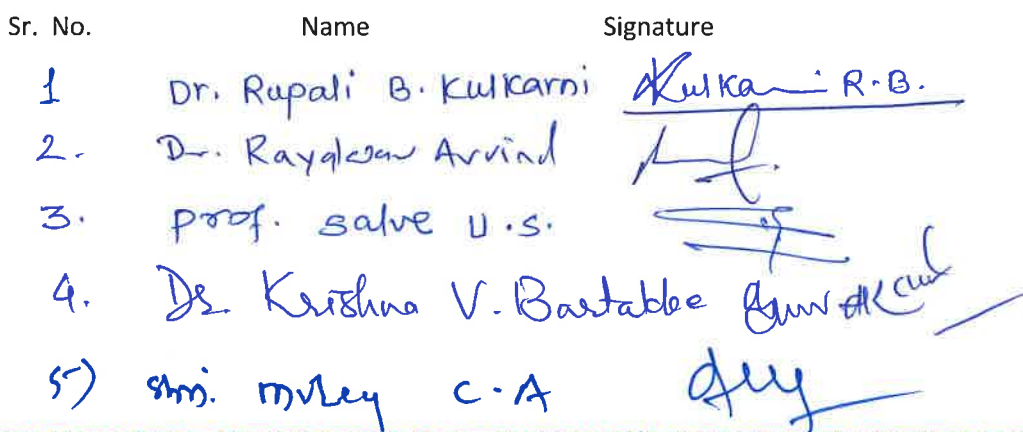 Sr. No. Name Signature
1 Dr. Rupali B. Kulkarni Kulkarni R.B.
2. Dr. Arvind
3. prof. salve U.S.
4. Dr. Krishna V.
5) shri. muley C.A